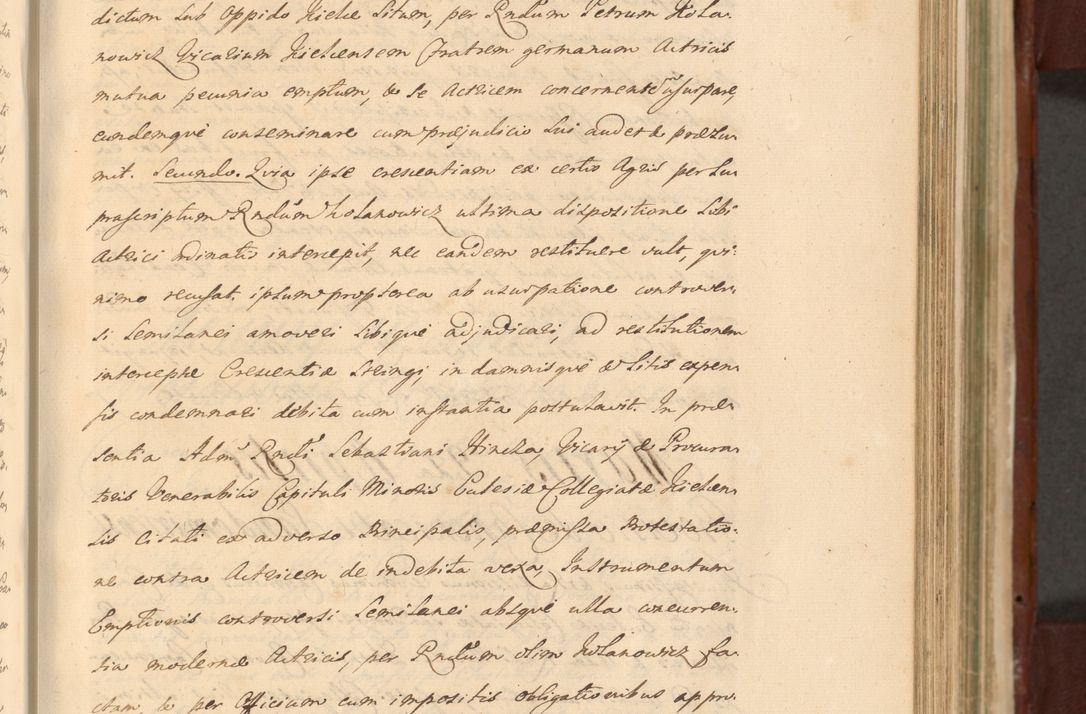 dictum sub Oppido Kielce Situm, per Rndum Petrum Kola-
nowicz Vicarium Kielcensem Fratrem germanum Actricis
mutua pecunia emptum, & se Actricem concernente usurpare,
eundemque conseminare cum præjudicio sui audet & præsu-
mit. Secundo. Quia ipse crescentiam ex certis Agris per su-
præscriptum Rndum Kolanowicz ultima dispositione Sibi
Actrici ordinatis intercepit, nec eandem restituere vult, qui-
nimo recusat. ipsum propterea ab usurpatione controver-
si Semilanei amoveri Sibique adjudicari, ad restitutionem
interceptæ Crescentiæ Stringi, in damnisque & Litis expen-
sis condemnari debita cum instantia postulavit. In præ-
sentia Admd Rndi Sebastiani Hincza Vicarij & Procura-
toris Venerabilis Capituli Minoris Eclesiæ Collegiatæ Kielcen-
sis Citati ex adverso Principalis, præmissa Protestatio-
ne contra Actricem de indebita vexa, Instrumentum
Emptionis controversi Semilanei absque ulla concurren-
tia modernæ Actricis, per Rndum olim Kolanowicz fa-
ctam, & per Officium cum impositis obligationibus appro-